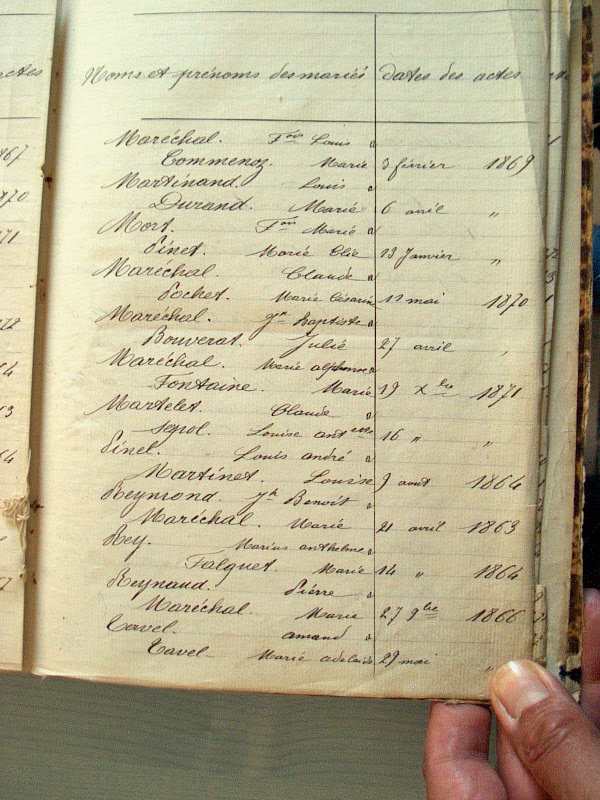 Noms et prénoms des mariés dates des actes
Maréchal. Fois Louis a
Commenoz. Marie 3 février 1869
Martinand. Louis a
Durand. Marie 6 avril "
Mort. Fois Marie a
Pinet. Marie Elie 13 Janvier "
Maréchal. Claude a
Pochet. Marie Césarine 11 mai 1870
Maréchal. Jn Baptiste a
Bouverat. Julie 27 avril "
Maréchal. Marie alphonse a
Fontaine. Marie 19 Xbre 1871
Martelet. Claude a
Seyvol. Louise antette 16 " "
Pinel. Louis andré a
Martinet. Louise 9 aout 1864
Reymond. Jh Benoit a
Maréchal. Marie 21 avril 1863
Rey. Marius anthelme a
Falquet. Marie 14 " 1864
Reynaud. Pierre a
Maréchal. Marie 27 9bre 1866
Tavel. amand a
Tavel. Marie adelaide 29 mai "